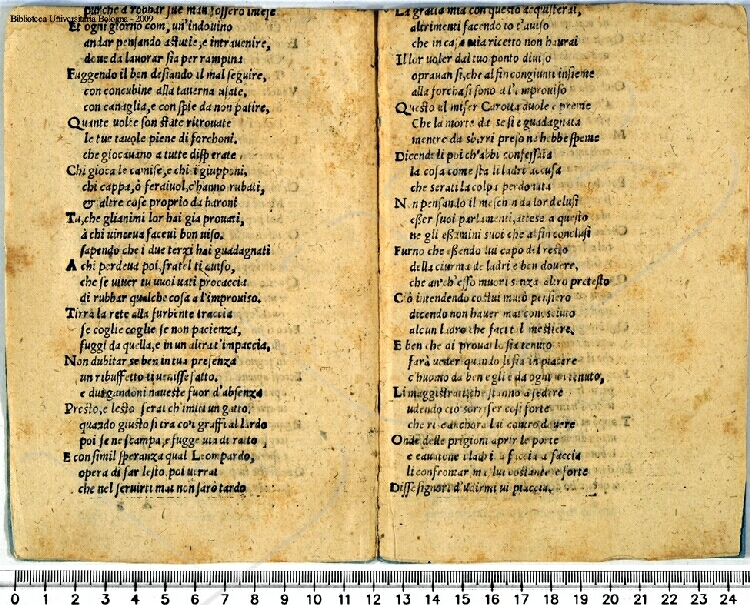 Biblioteca Universitaria Bologna - 2009
pur che a robbar sue man fossero intese
Et ogni giorno com, un'indouino
andar pensando astutie, e intrauenire,
doue da lauorar sia per rampina
Fuggendo il ben desiando il mal seguire,
con concubine alla tauerna usate,
con canaglia, e con spie da non patire,
Quante uolte son state ritrouate
le tue tauole piene di forchoni,
che giocauano a tutte disperate
Chi gioca le camise, e chi i giupponi,
chi cappa, ò feraiuol, c'hanno rubati,
& altre cose proprio da baroni
Tu, che gli animi lor hai gia prouati,
à chi uinceua faceui bon uiso.
sapendo che i due terzi hai guadagnati
A chi perdeua poi, fratel ti auiso,
che se uiuer tu uuoi uati procaccia
di rubbar qualche cosa a l'improuiso.
Tirrà la rete alla furbinte traccia
se coglie coglie se non pacienza,
fuggi da quella, e in un altra t'impaccia,
Non dubitar se ben in tua presenza
un ribuffetto ti uenisse fatto.
e durgandoni haueste fuor d'absenza
Presto, e lesto serai ch'imiti un gatto,
quando giusto si tra co i graffi al lardo
poi se ne scampa, e fugge uia di ratto
E con simil speranza qual Leompardo,
opera di far lesto, poi uerrai
che nel seruirti mai non sarò tardo
La gratia mia con questo acquisterai,
altrimenti facendo io t'auiso
che in casa mia ricetto non haurai
Il lor uoler dal tuo ponto diuiso
oprauan si, che al fin congiunti insiente
alla forcha si sono a l'improuiso
Questo il miser Carotta duole e preme
Che la morte da se si è guadagnata
mentre da sbirri preso ne hebbe speme
Dicendoli poi ch'abbi confessata
la cosa come sta li ladri accusa
che serati la colpa perdonata
Non pensando il meschin da lor delusi
esser suoi parlamenti, attese a questo
ne gli essamini suoi che al fin conclusi
Furno che essendo lui capo del resto
della ciurma de ladri e ben douere,
che anch'esso muori senza altro pretesto
Ciò intendendo costui mutò pensiero
dicendo non hauer mai conosciuto
alcun ladro che facci il mestiere,
E ben che di prouarlo sia tenuto
farà ueder quando li sia in piacere
c'huomo da ben egli è da ogni un tenuto,
Li maggistrati, che stanno à sedere
udendo ciò sorriser così forte
che ridea anchora lui contro douere
Onde delle prigioni aprir le porte
e cauatone i ladri, a faccia a faccia
li confrontar ma lui costante e forte
Disse signori d'udirmi ui piaccia,
0 1 2 3 4 5 6 7 8 9 10 11 12 13 14 15 16 17 18 19 20 21 22 23 24